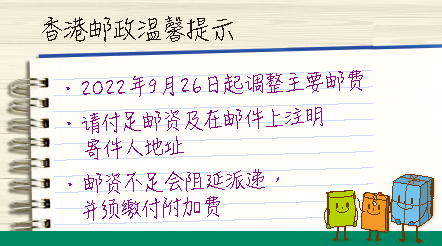 香港邮政温馨提示
· 2022年9月26日起调整主要邮费
· 请付足邮资及在邮件上注明
寄件人地址
· 邮资不足会阻延派递，
并须缴付附加费